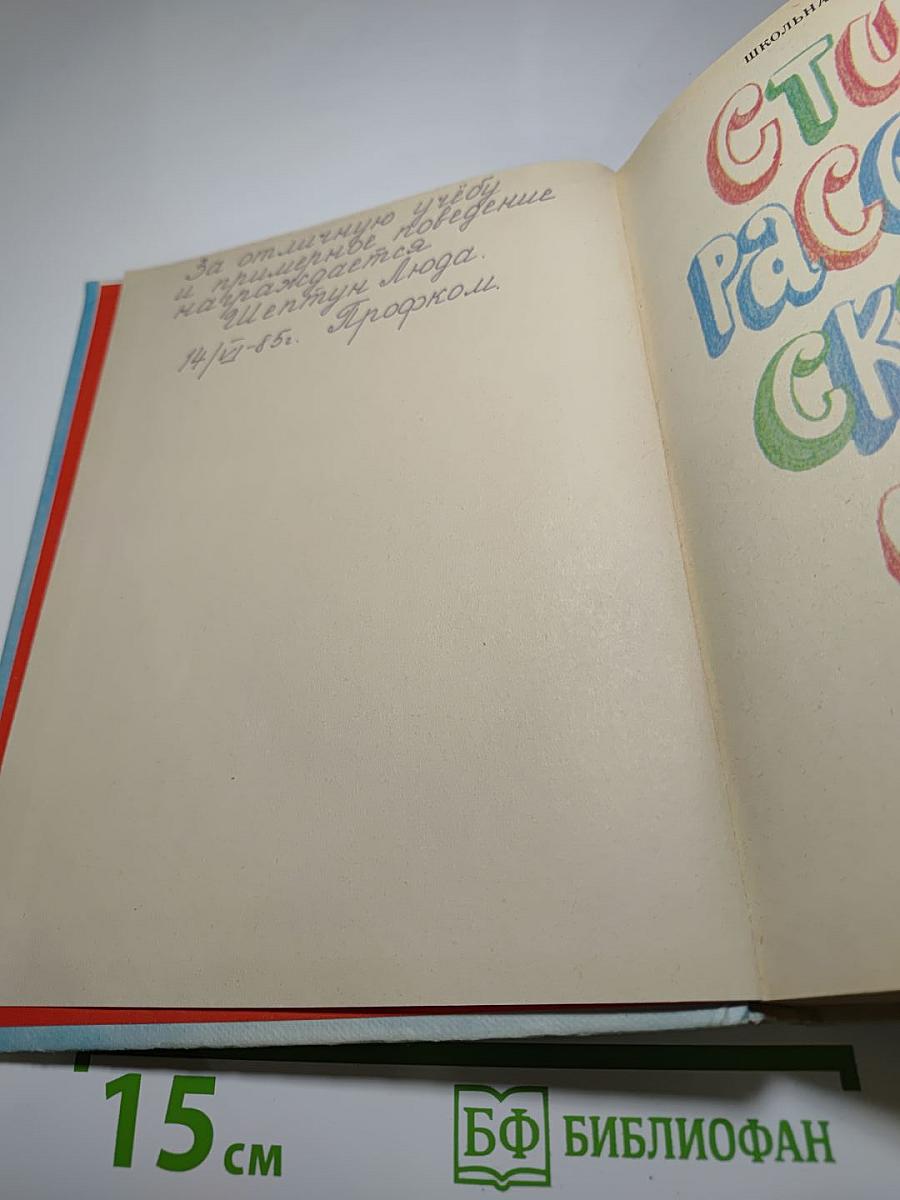 За отличную учёбу
и примерное поведение
награждается
Шептун Люда.
14/VI-85г. Профком.
школьна
сти
расс
ск
15 см
БФ БИБЛИОФАН